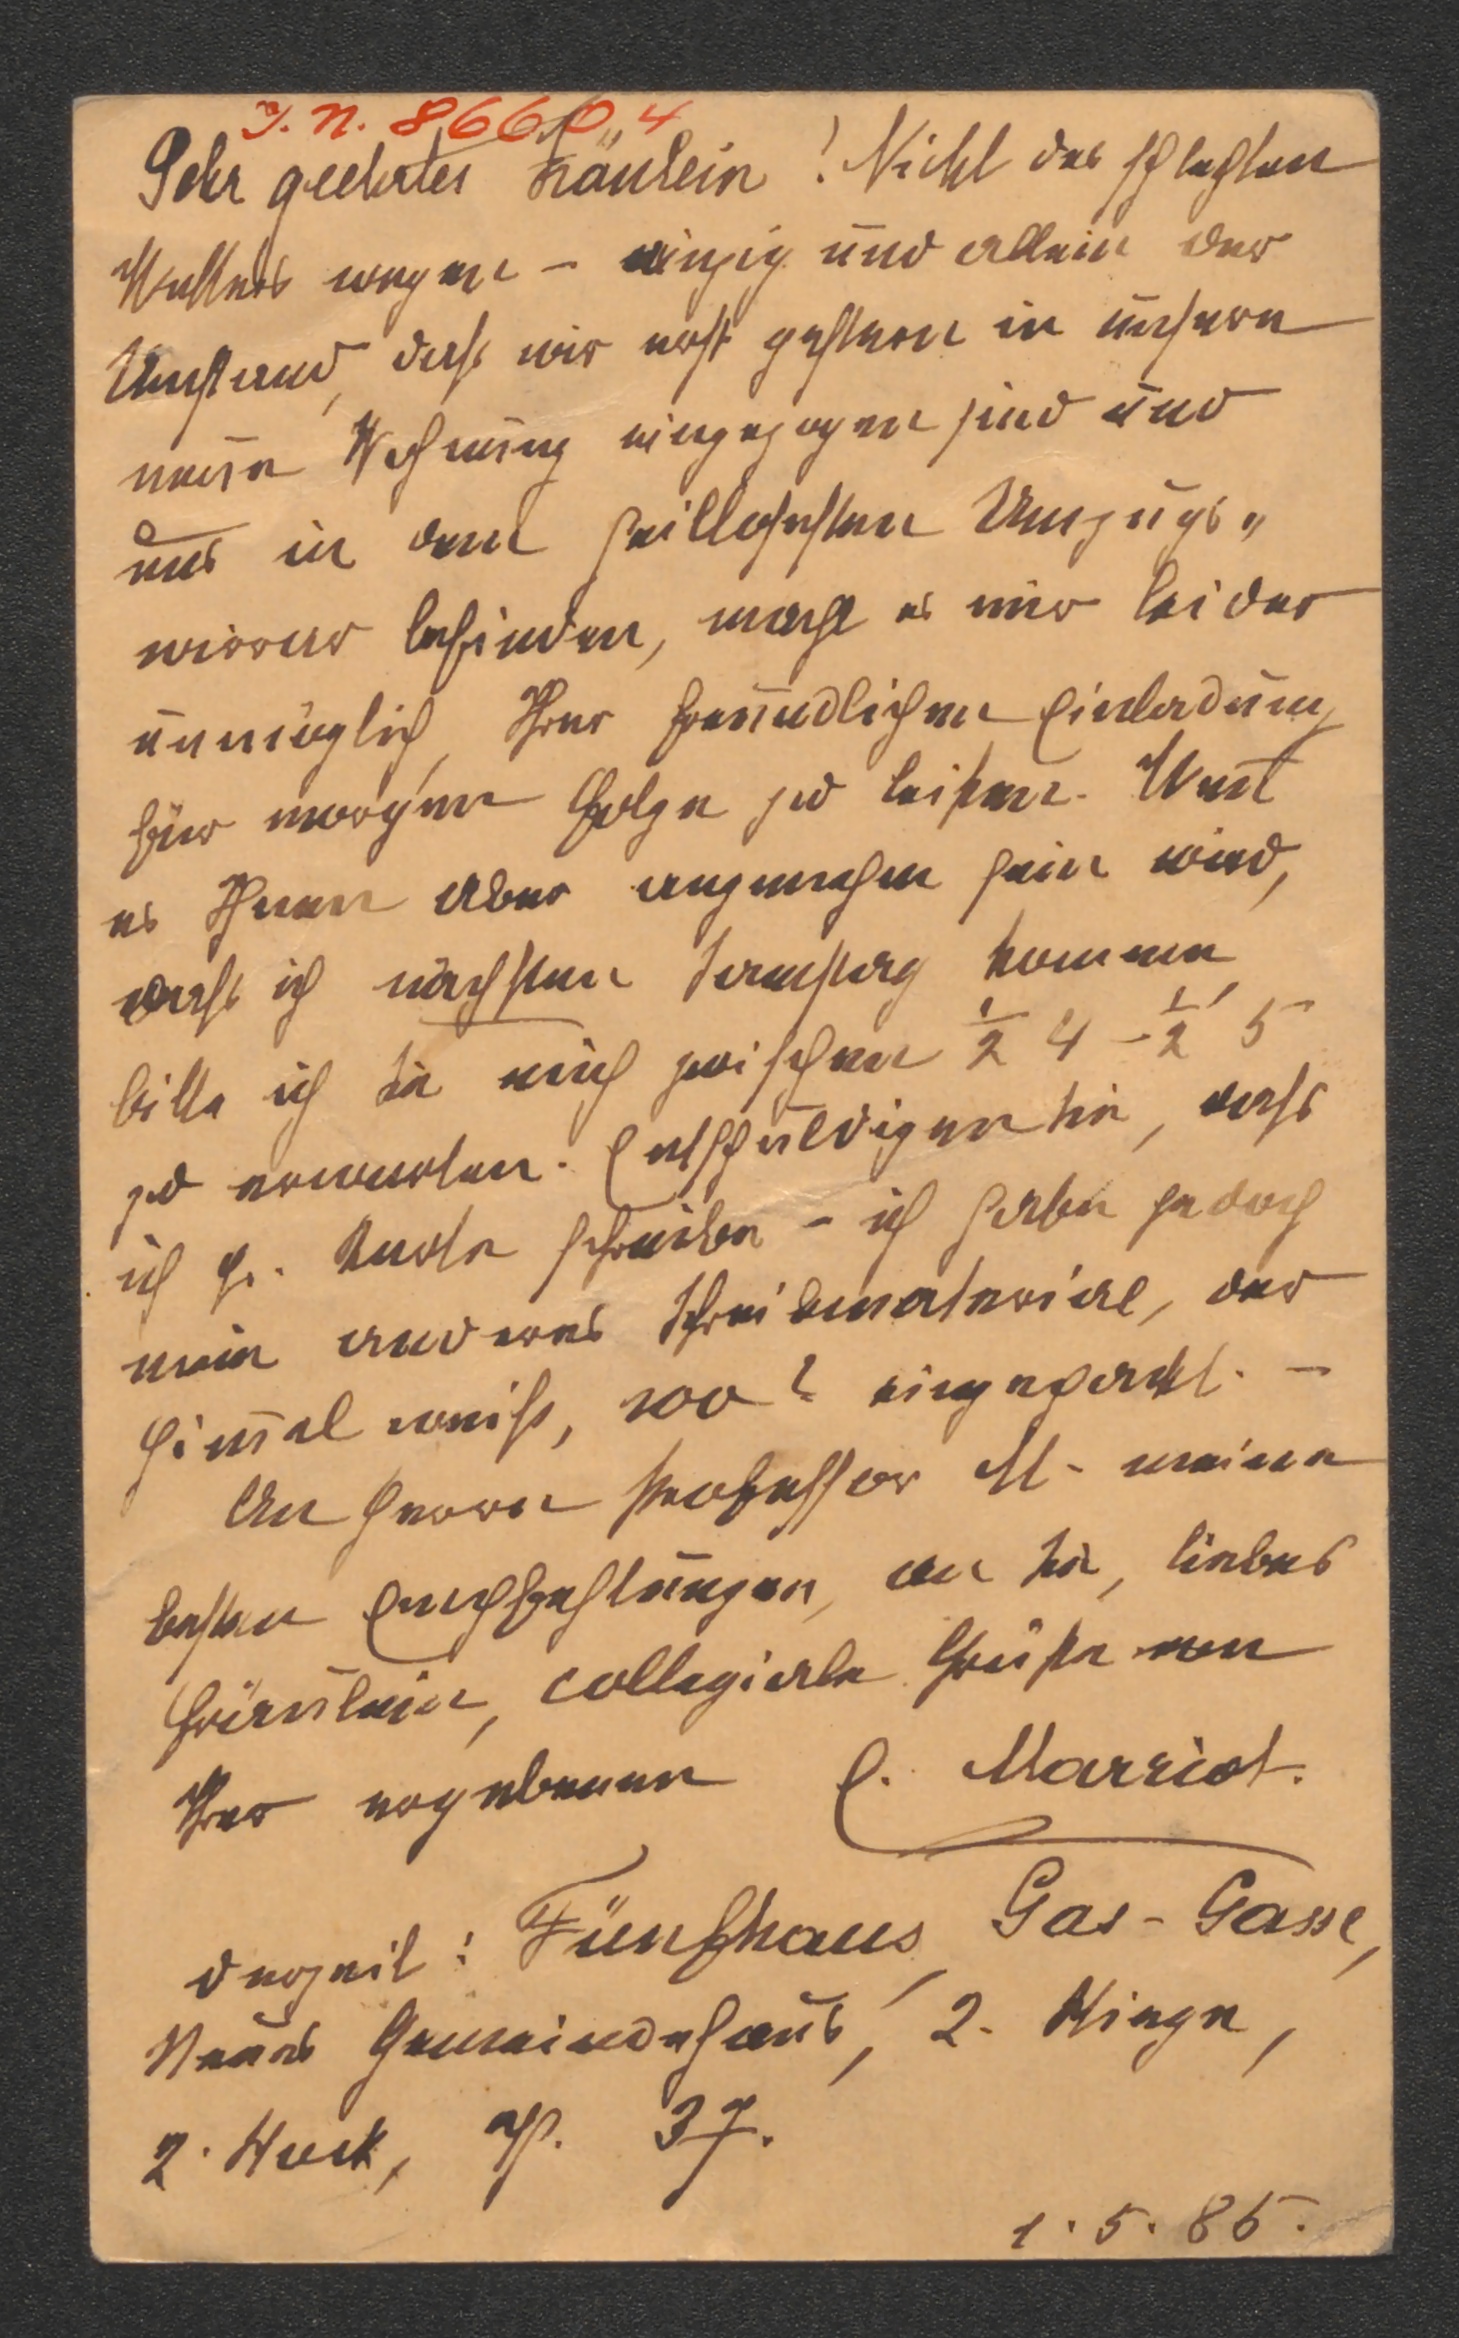 I. N. 86604
Sehr geehrtes Fräulein! Nicht des schlechten
Wetters wegen – einzig und allein der
Umstand, daß wir erst gestern in unsere
neue Wohnung eingezogen sind und
uns in dem heillosesten Umzugs„
wirrwar befinden, macht es mir leider
unmöglich, Ihrer freundlichen Einladung
für morgen Folge zu leisten. Wen̅
es Ihnen aber angenehm sein wird,
daß ich nächsten Samstag komme,
bitte ich Sie mich zwischen ½ 4 – ½ 5
zu erwarten. Entschuldigen Sie, daß
ich pr. Karte schreibe – ich habe jedoch
mein anderes Schreibmaterial, der
Him̅el weiß, wo? eingepackt. –
An Herrn Professor M. meine
besten Empfehlungen, an Sie, liebes
Fräulein, collegiale Grüße von
Ihrer ergebenen E. Marriot.
derzeit: Fünfhaus, Gas-Gasse,
Neues Gemeindehaus, 2. Stiege,
2. Stock, Th. 37.
1. 5. 85.